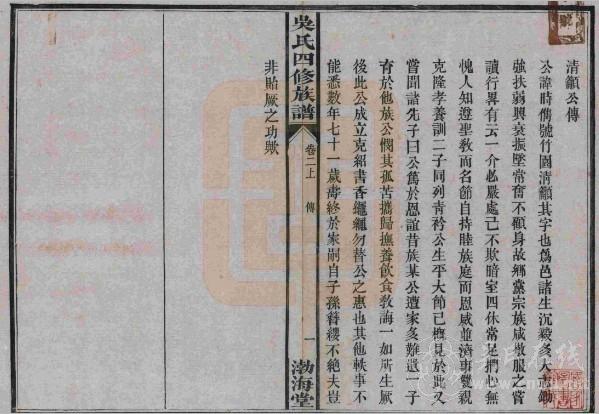 清顲公傳
公諱時儁號竹園清顲其字也為邑諸生沉毅有大
強扶弱興衰振墜常奮不顧身故鄉黨宗族咸敬服之嘗
讀行畧有云一介必嚴處己不欺暗室四休常足捫心無
愧人知遵聖教而名節自持睦族庭而恩威並濟事雙親
克隆孝養訓二子同列青衿公生平大節已槪見於此又
嘗聞諸先子曰公篤於恩誼昔族某公遭家多難遺一子
育於他族公憫其孤苦攜歸撫養飲食敎誨一如所生厥
後此公成立克紹書香繩繩勿替公之惠也其他軼事不
能悉數年七十一歲壽終於家嗣自子孫簪纓不絕夫豈
非貽厥之功歟
吳氏四修族譜
卷二上
傳
一
渤海堂